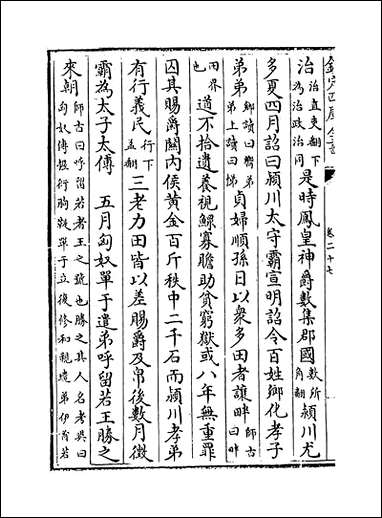 欽定四庫全書 卷二十七
治治直吏翻下為治政治同是時鳳皇神爵數集郡國數所角翻潁川尤
多夏四月詔曰潁川太守霸宣明詔令百姓鄉化孝子
弟弟鄉讀曰嚮弟弟上讀曰悌貞婦順孫日以衆多田者讓畔師古曰畔
田界也道不拾遺養視鰥寡贍助貧窮獄或八年無重罪
囚其賜爵關内侯黄金百斤秩中二千石而潁川孝弟
有行義民行下孟翻三老力田皆以差賜爵及帛後數月徵
霸為太子太傅 五月匈奴單于遣弟呼留若王勝之
來朝師古曰呼留若者王之號也勝之其人名考異曰匈奴傳握衍朐鞮單于立復修和親遣弟伊酋若